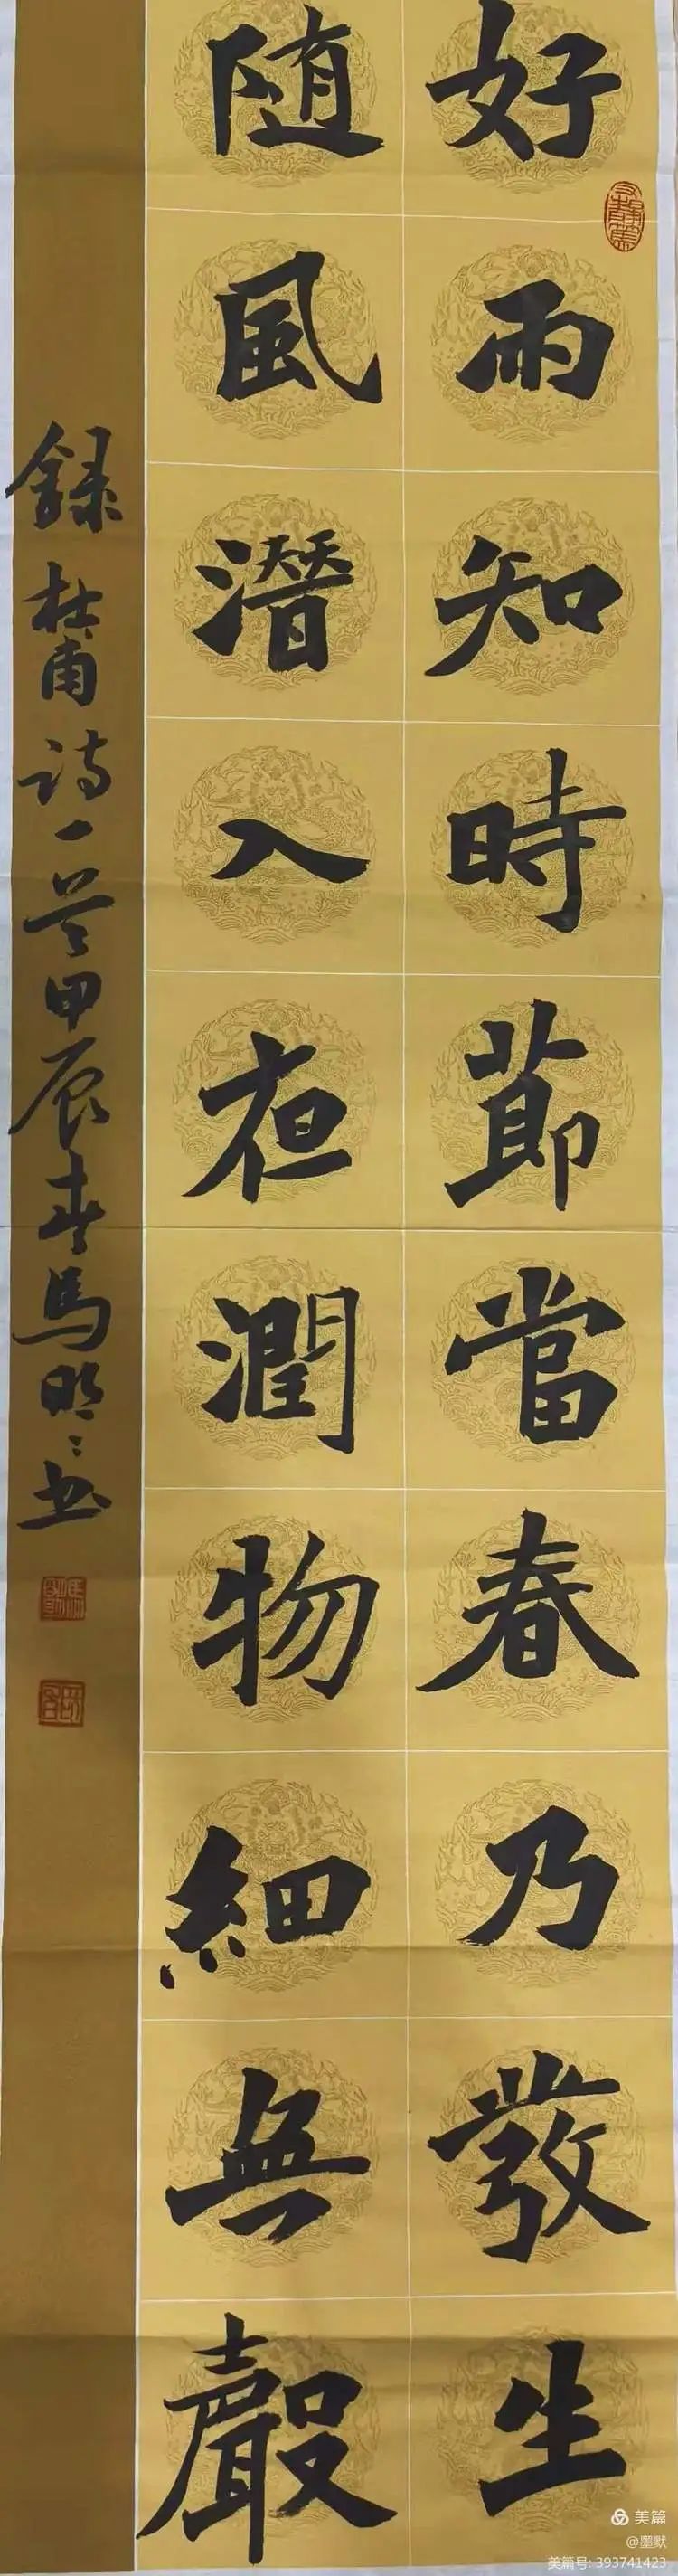 好雨知時節當春乃發生
随風潛入夜潤物細無聲
録杜甫诗一首甲辰春馬明〻书
美篇
@墨默
美篇号: 393741423